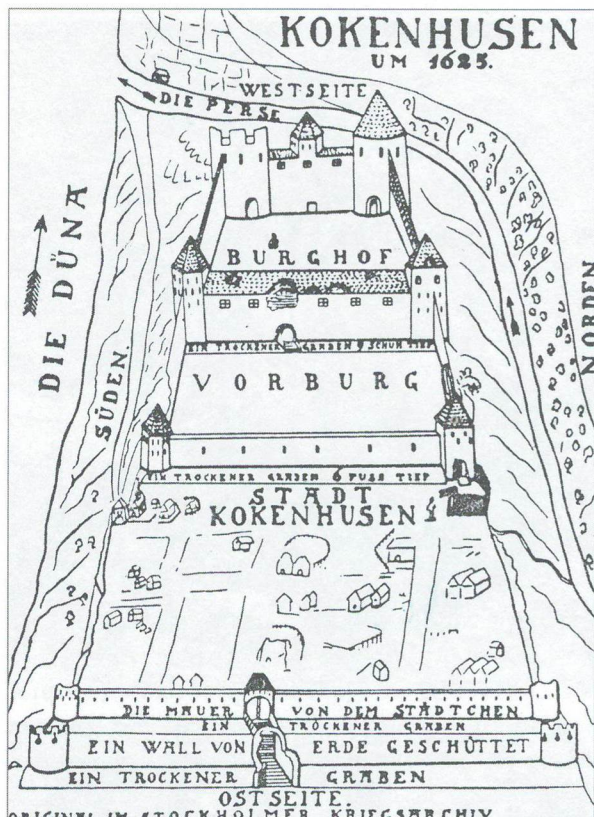 KOKENHUSEN
UM 1625.
WESTSEITE
DIE PERSE
DIE DÜNA
SÜDEN.
NORDEN
BURGHOF
EIN TROCKENER GRABEN 9 SCHUH TIEF
VORBURG
EIN TROCKENER GRABEN 6 FUSS TIEF
STADT
KOKENHUSEN
DIE MAUER VON DEM STÄDTCHEN
EIN TROCKENER GRABEN
EIN WALL VON ERDE GESCHÜTTET
EIN TROCKENER GRABEN
OSTSEITE.
ORIGINAL IM STOCKHOLMER KRIEGSARCHIV